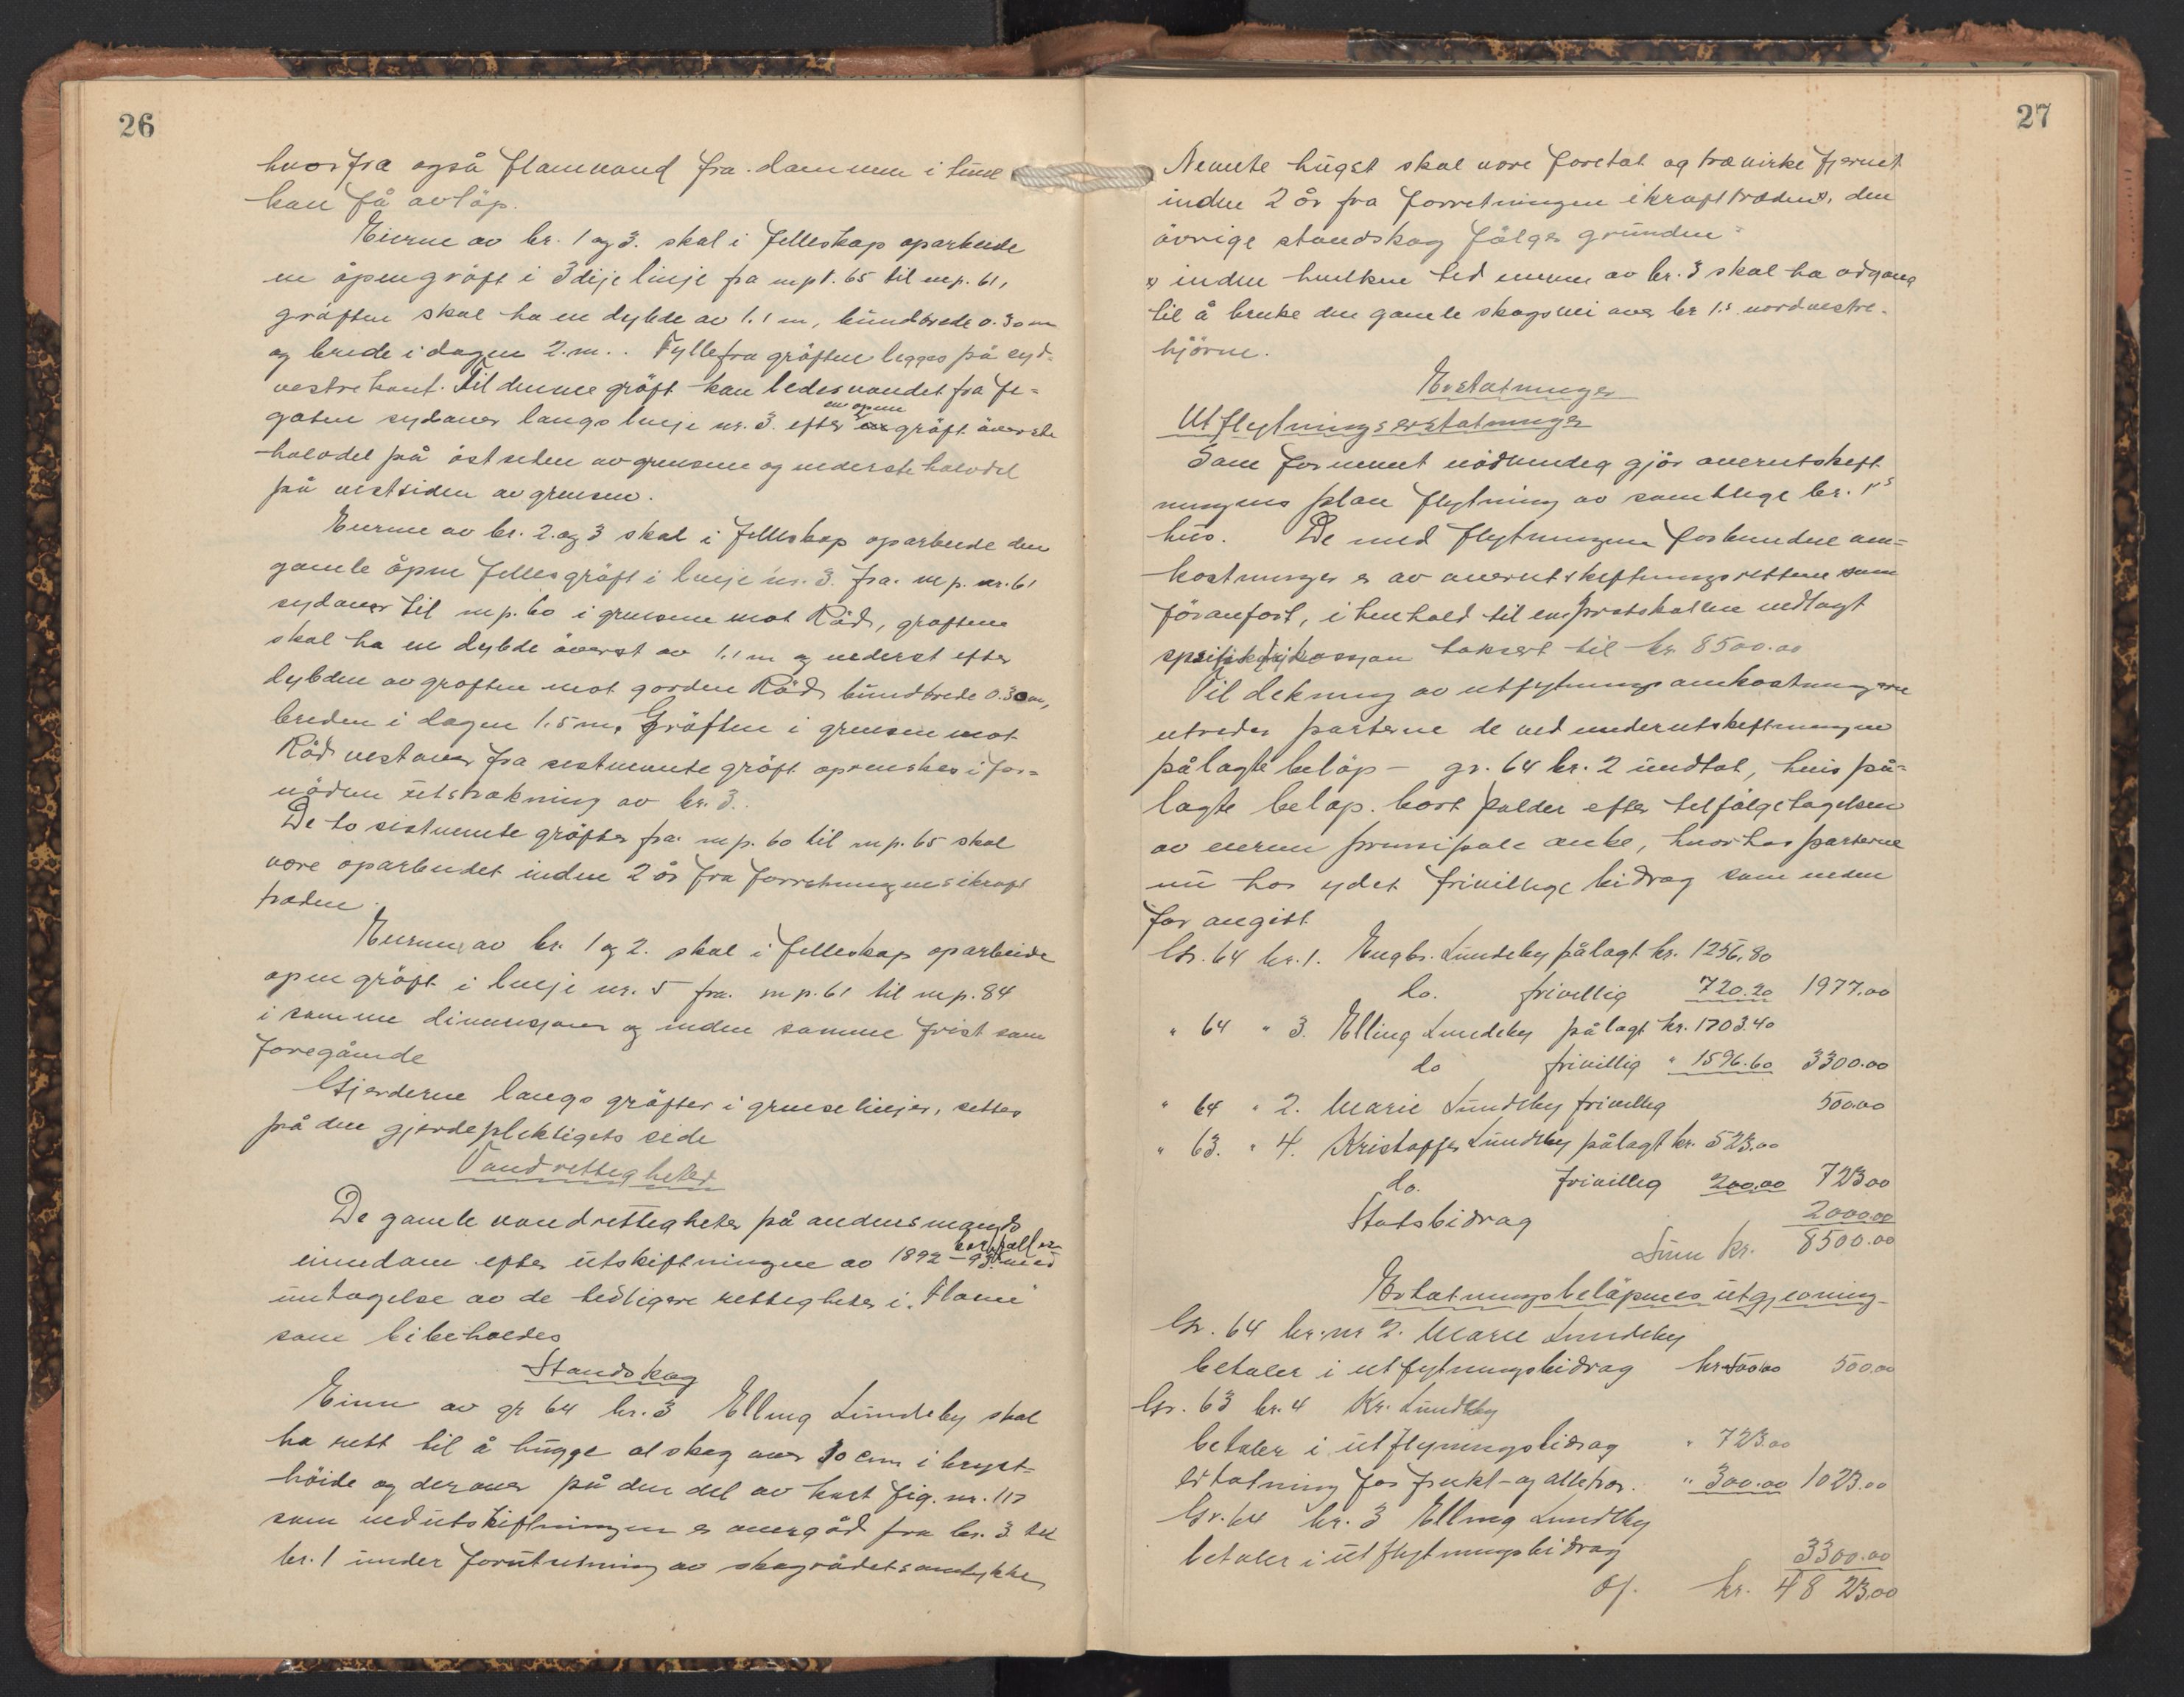 26
hvorfra også flomvand fra dammen i tunet
kan få avløp.
Eierne av br. 1 og 3. skal i fellesskap oparbeide
en åpen grøft i 3dije linje fra mpt. 65 til mp. 61,
grøften skal ha en dybde av 1.1 m, bundbrede 0.30 m
og brede i dagen 2.m.. Fylle fra grøften legges på syd-
vestre kant. Til denne grøft kan ledes vandet fra fe-
gaten sydover langs linje nr. 3. efter en open grøft øverste
halvdel på østsiden av grensen og nederste halvdel
på vestsiden av grensen.
Eierne av br. 2. og 3 skal i fellesskap oparbeide den
gamle åpne fellesgrøft i linje nr. 3. fra mp. nr. 61
sydover til mp. 60 i grensen mot Råd, grøften
skal ha en dybde øverst av 1.1 m og nederst efter
dybden av grøften mot gorden Råd, bundbrede 0.30 m,
breden i dagen 1.5 m, Grøften i grensen mot
Råd vestover fra sistnevnte grøft oprenskes i for-
nøden utstrækning av br. 3.
De to sistnevnte grøfter fra mp. 60 til mp. 65 skal
være oparbeidet inden 2 år fra forretningens ikraft
træden.
Eierne av br. 1 og 2. skal i fellesskap oparbeide
open grøft i linje nr. 5 fra mp. 61 til mp. 84
i samme dimensjoner og inden samme frist som
foregående
Gjerderne langs grøfter i grenselinjer, settes
på den gjerdepliktigets side
Vandrettigheter
De gamle vandrettigheter på andens mands
eiendom efter utskiftningen av 1892-93 bortfaller med
untagelse av de tidligere rettigheter i "Flomi"
som bibeholdes
Standskog
Eieren av gr 64 br. 3 Elling Lundeby skal
ha rett til å hugge al skog over 10 cm i bryst-
høide og derover på den del av kart fig. nr. 117
som ved utskiftningen er overgåd fra br. 3 til
br. 1 under forutsetning av skogrådets samtykke,
27
Nevnte hugst skal være foretat og trævirke fjernet
inden 2 år fra forretningen ikrafttræden x, den
øvrige standskog følger grunden
x inden hvilken tid eieren av br. 3 skal ha adgang
til å bruke den gamle skogsvei over br 1.s nordvestre
hjørne.
Erstatninger
Utflytningserstatninger
Som fornevnt nødvendig gjør overutskift
ningens plan flytning av samtlige br. 1s
hus. De med flytningen forbundne om-
kostninger er av overutskiftningsretten som
før anført, i henhold til en protokollen vedlagt
spesifikasjon taksert til kr 8500.00
Til dekning av utflytningsomkostningerne
utreder parterne de ved underutskiftningen
pålagte beløp – gr. 64 br. 2 undtat, hvis på-
lagte beløp bortfalder efter tilfølgetagelsen
av eieren prinsipale anke, hvorhos parterne
nu har ydet frivillige bidrag som neden
for angitt
Gr. 64 br. 1. Engbr. Lundeby pålagt kr. 1256,80
do. frivillig 720.20 1977.00
" 64 " 3. Elling Lundeby pålagt kr. 1703.40
do frivillig " 1596.60 3300.00
" 64 " 2. Marie Lundeby frivillig 500.00
" 63. " 4. Kristoffer Lundeby pålagt kr. 523.00
do. frivillig 200.00 723.00
Statsbidrag 2000.00
Sum kr. 8500.00
Erstatningsbeløpenes utgjevning
Gr. 64 br. nr 2. Marie Lundeby
betaler i utflytningsbidrag kr 500.00 500.00
Gr. 63 br. 4 Kr. Lundeby
betaler i utflytningsbidrag " 723.00
erstatning for frukt- og alletrær. " 300.00 1023.00
Gr. 64 br. 3 Elling Lundeby
betaler i utflytningsbidrag 3300.00
Of. kr. 4823.00